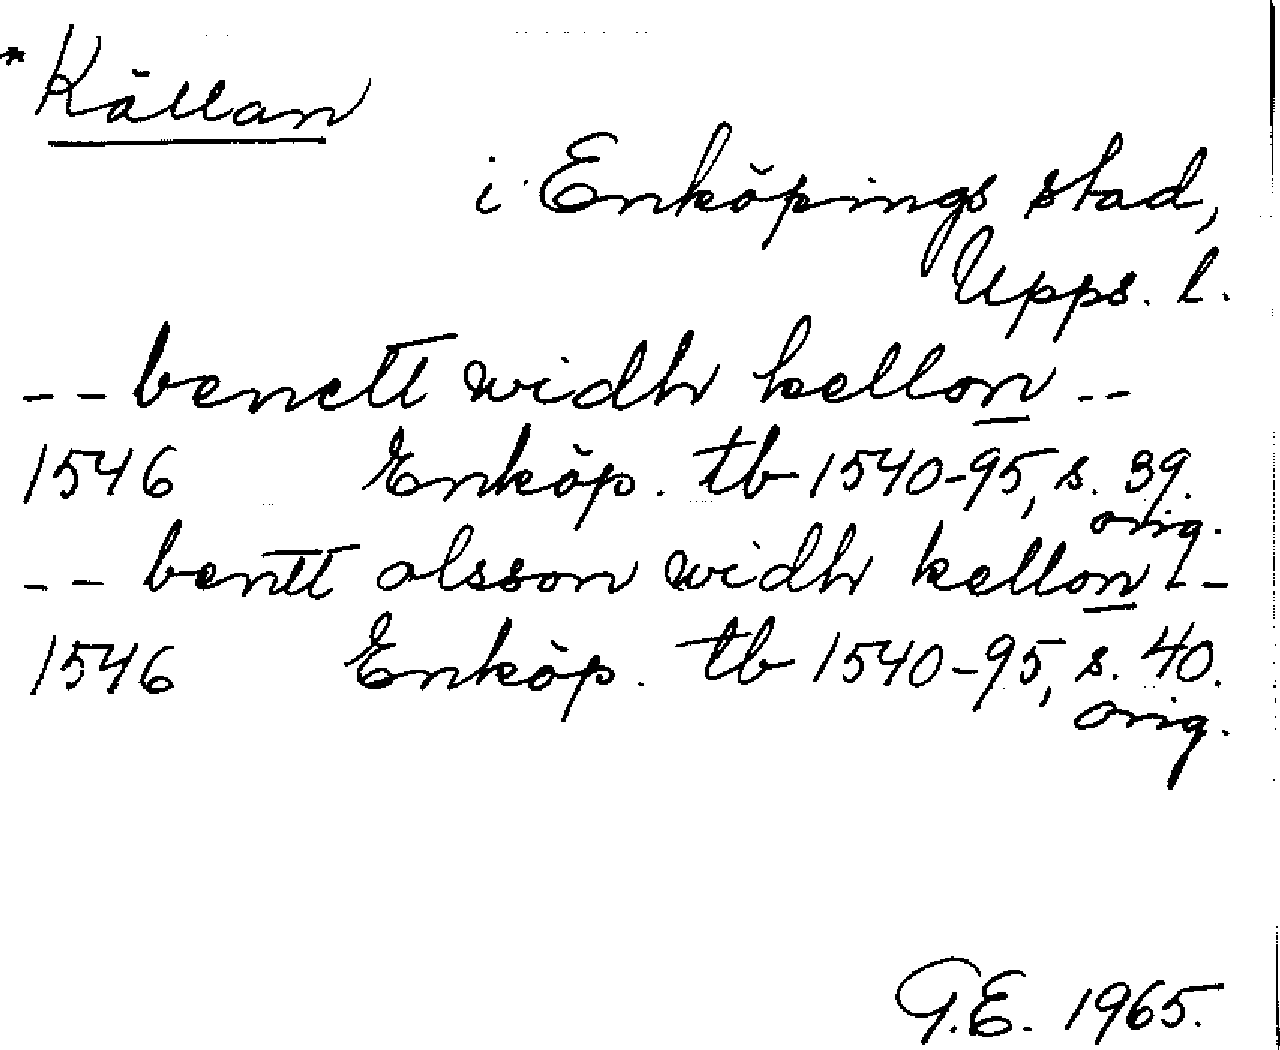 *Källan
i Enköpings stad,
Upps. l.
-- benett widh kellon --
1546 Enköp. tb 1540-95, s. 39.
orig.
-- bentt olsson widh kellon --
1546 Enköp. tb 1540-95, s. 40.
orig.
G.E. 1965.